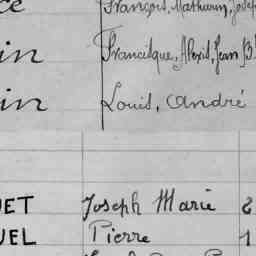 ce François, Mathurin, Joseph
in Francisque, Alexis, Jean B
in Louis, André
UET Joseph Marie 2
UEL Pierre 1